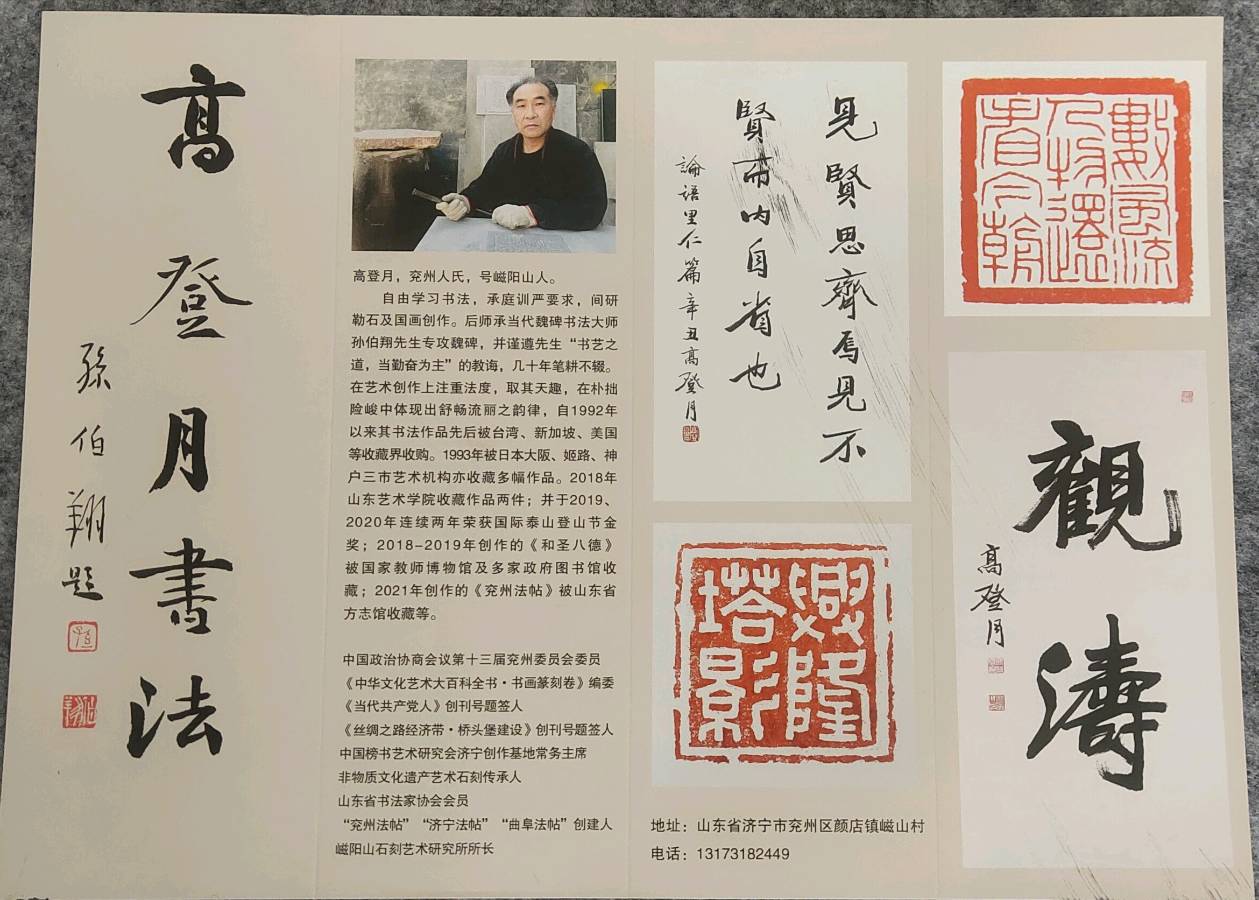 高登月書法
孫伯翔題
高登月，兖州人氏，号嵫阳山人。
自由学习书法，承庭训严要求，间研
勒石及国画创作。后师承当代魏碑书法大师
孙伯翔先生专攻魏碑，并谨遵先生“书艺之
道，当勤奋为主”的教诲，几十年笔耕不辍。
在艺术创作上注重法度，取其天趣，在朴拙
险峻中体现出舒畅流丽之韵律，自1992年
以来其书法作品先后被台湾、新加坡、美国
等收藏界收购。1993年被日本大阪、姬路、神
户三市艺术机构亦收藏多幅作品。2018年
山东艺术学院收藏作品两件；并于2019、
2020年连续两年荣获国际泰山登山节金
奖；2018-2019年创作的《和圣八德》
被国家教师博物馆及多家政府图书馆收
藏；2021年创作的《兖州法帖》被山东省
方志馆收藏等。
中国政治协商会议第十三届兖州委员会委员
《中华文化艺术大百科全书·书画篆刻卷》编委
《当代共产党人》创刊号题签人
《丝绸之路经济带·桥头堡建设》创刊号题签人
中国榜书艺术研究会济宁创作基地常务主席
非物质文化遗产艺术石刻传承人
山东省书法家协会会员
“兖州法帖”“济宁法帖”“曲阜法帖”创建人
嵫阳山石刻艺术研究所所长
見賢思齊焉見不
賢而内自省也
論語里仁篇辛丑高登月
興隆
塔影
地址：山东省济宁市兖州区颜店镇嵫山村
电话：13173182449
數風流
人物還
看今朝
觀濤
高登月